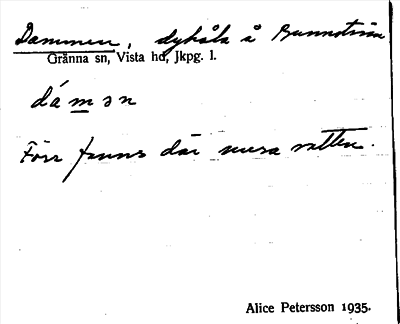 Dammen, dyhåla å Gunnström.
Gränna sn, Vista hd, Jkpg. l.
dámən
Förr fanns där mera vatten.
Alice Petersson 1935.